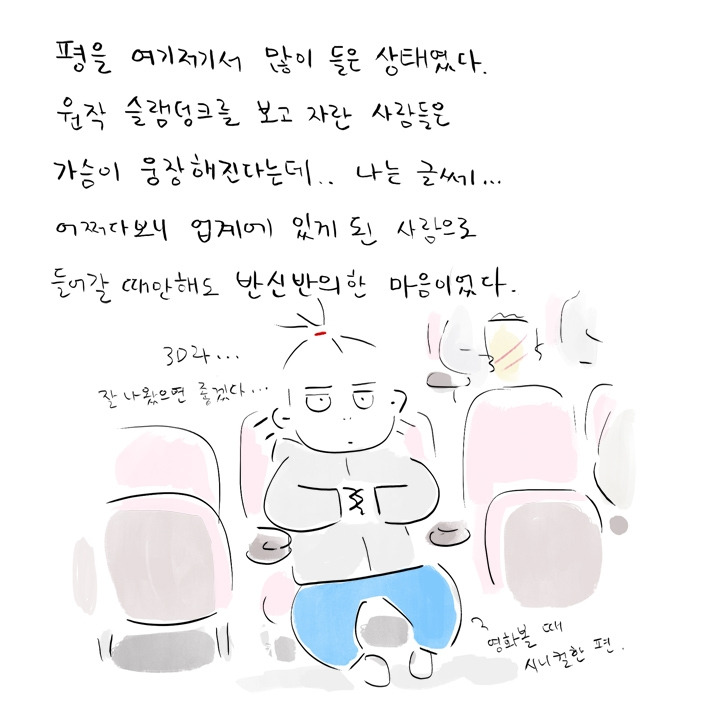 평을 여기저기서 많이 들은 상태였다.
원작 슬램덩크를 보고 자란 사람들은
가슴이 웅장해진다는데.. 나는 글쎄...
어쩌다보니 업계에 있게 된 사람으로
들어갈 때만해도 반신반의한 마음이었다.
3D라...
잘 나왔으면 좋겠다...
영화볼 때
시니컬한 편.